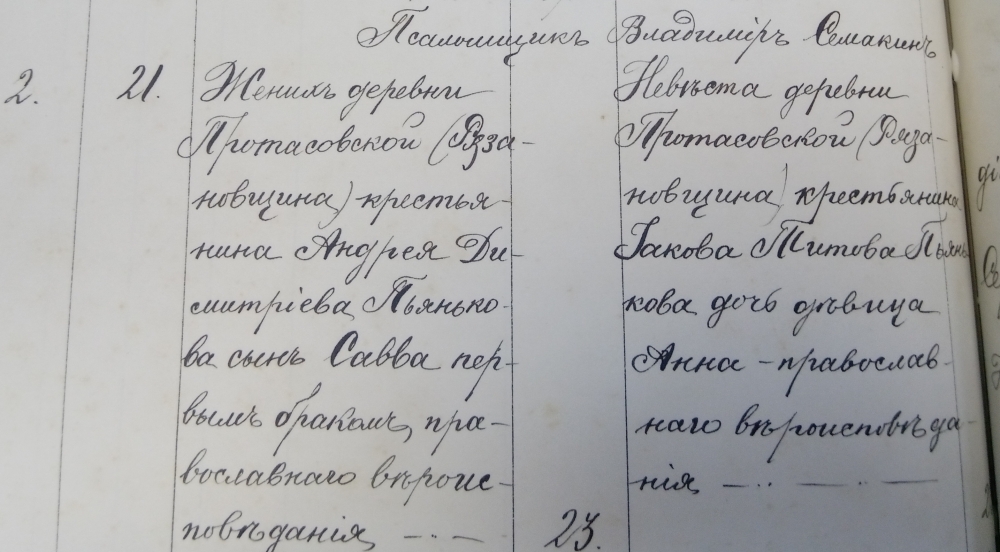 Псаломщикъ Владиміръ Семакинъ
2. 21. Женихъ деревни
Протасовской (Ряза-
новщина) крестья-
нина Андрея Ди-
митріева Пьянько-
ва сынъ Савва пер-
вымъ бракомъ, пра-
вославнаго вѣроис-
повѣданія
23.
Невѣста деревни
Протасовской (Ряза-
новщина) крестьянина
Іакова Титова Пьянь-
кова дочь дѣвица
Анна - православ-
наго вѣроисповѣда-
нія